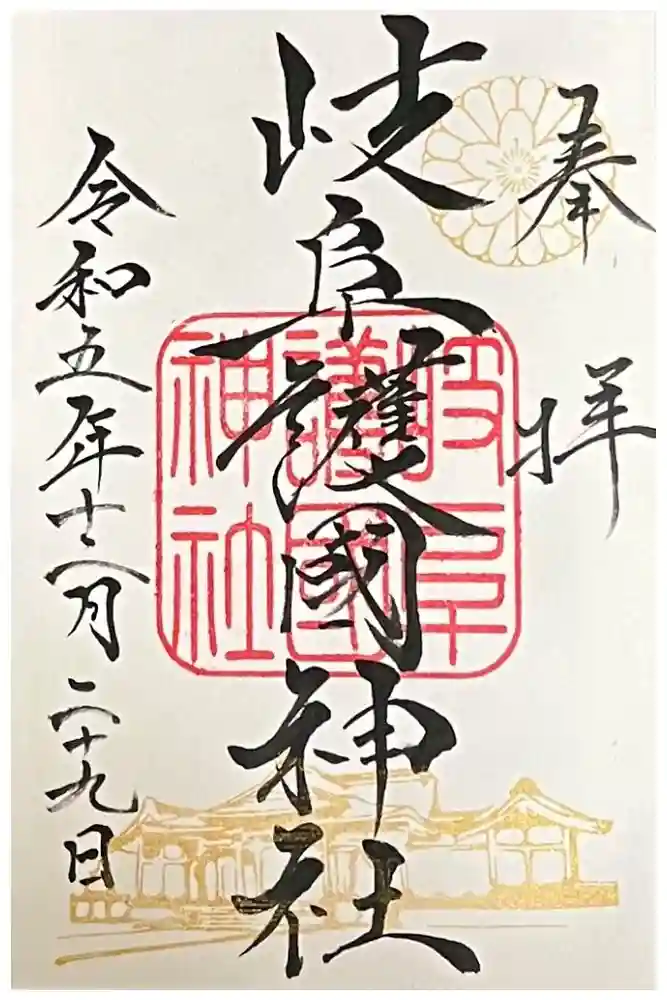 奉拝
岐阜護國神社
岐阜護國神社
令和五年十二月二十九日